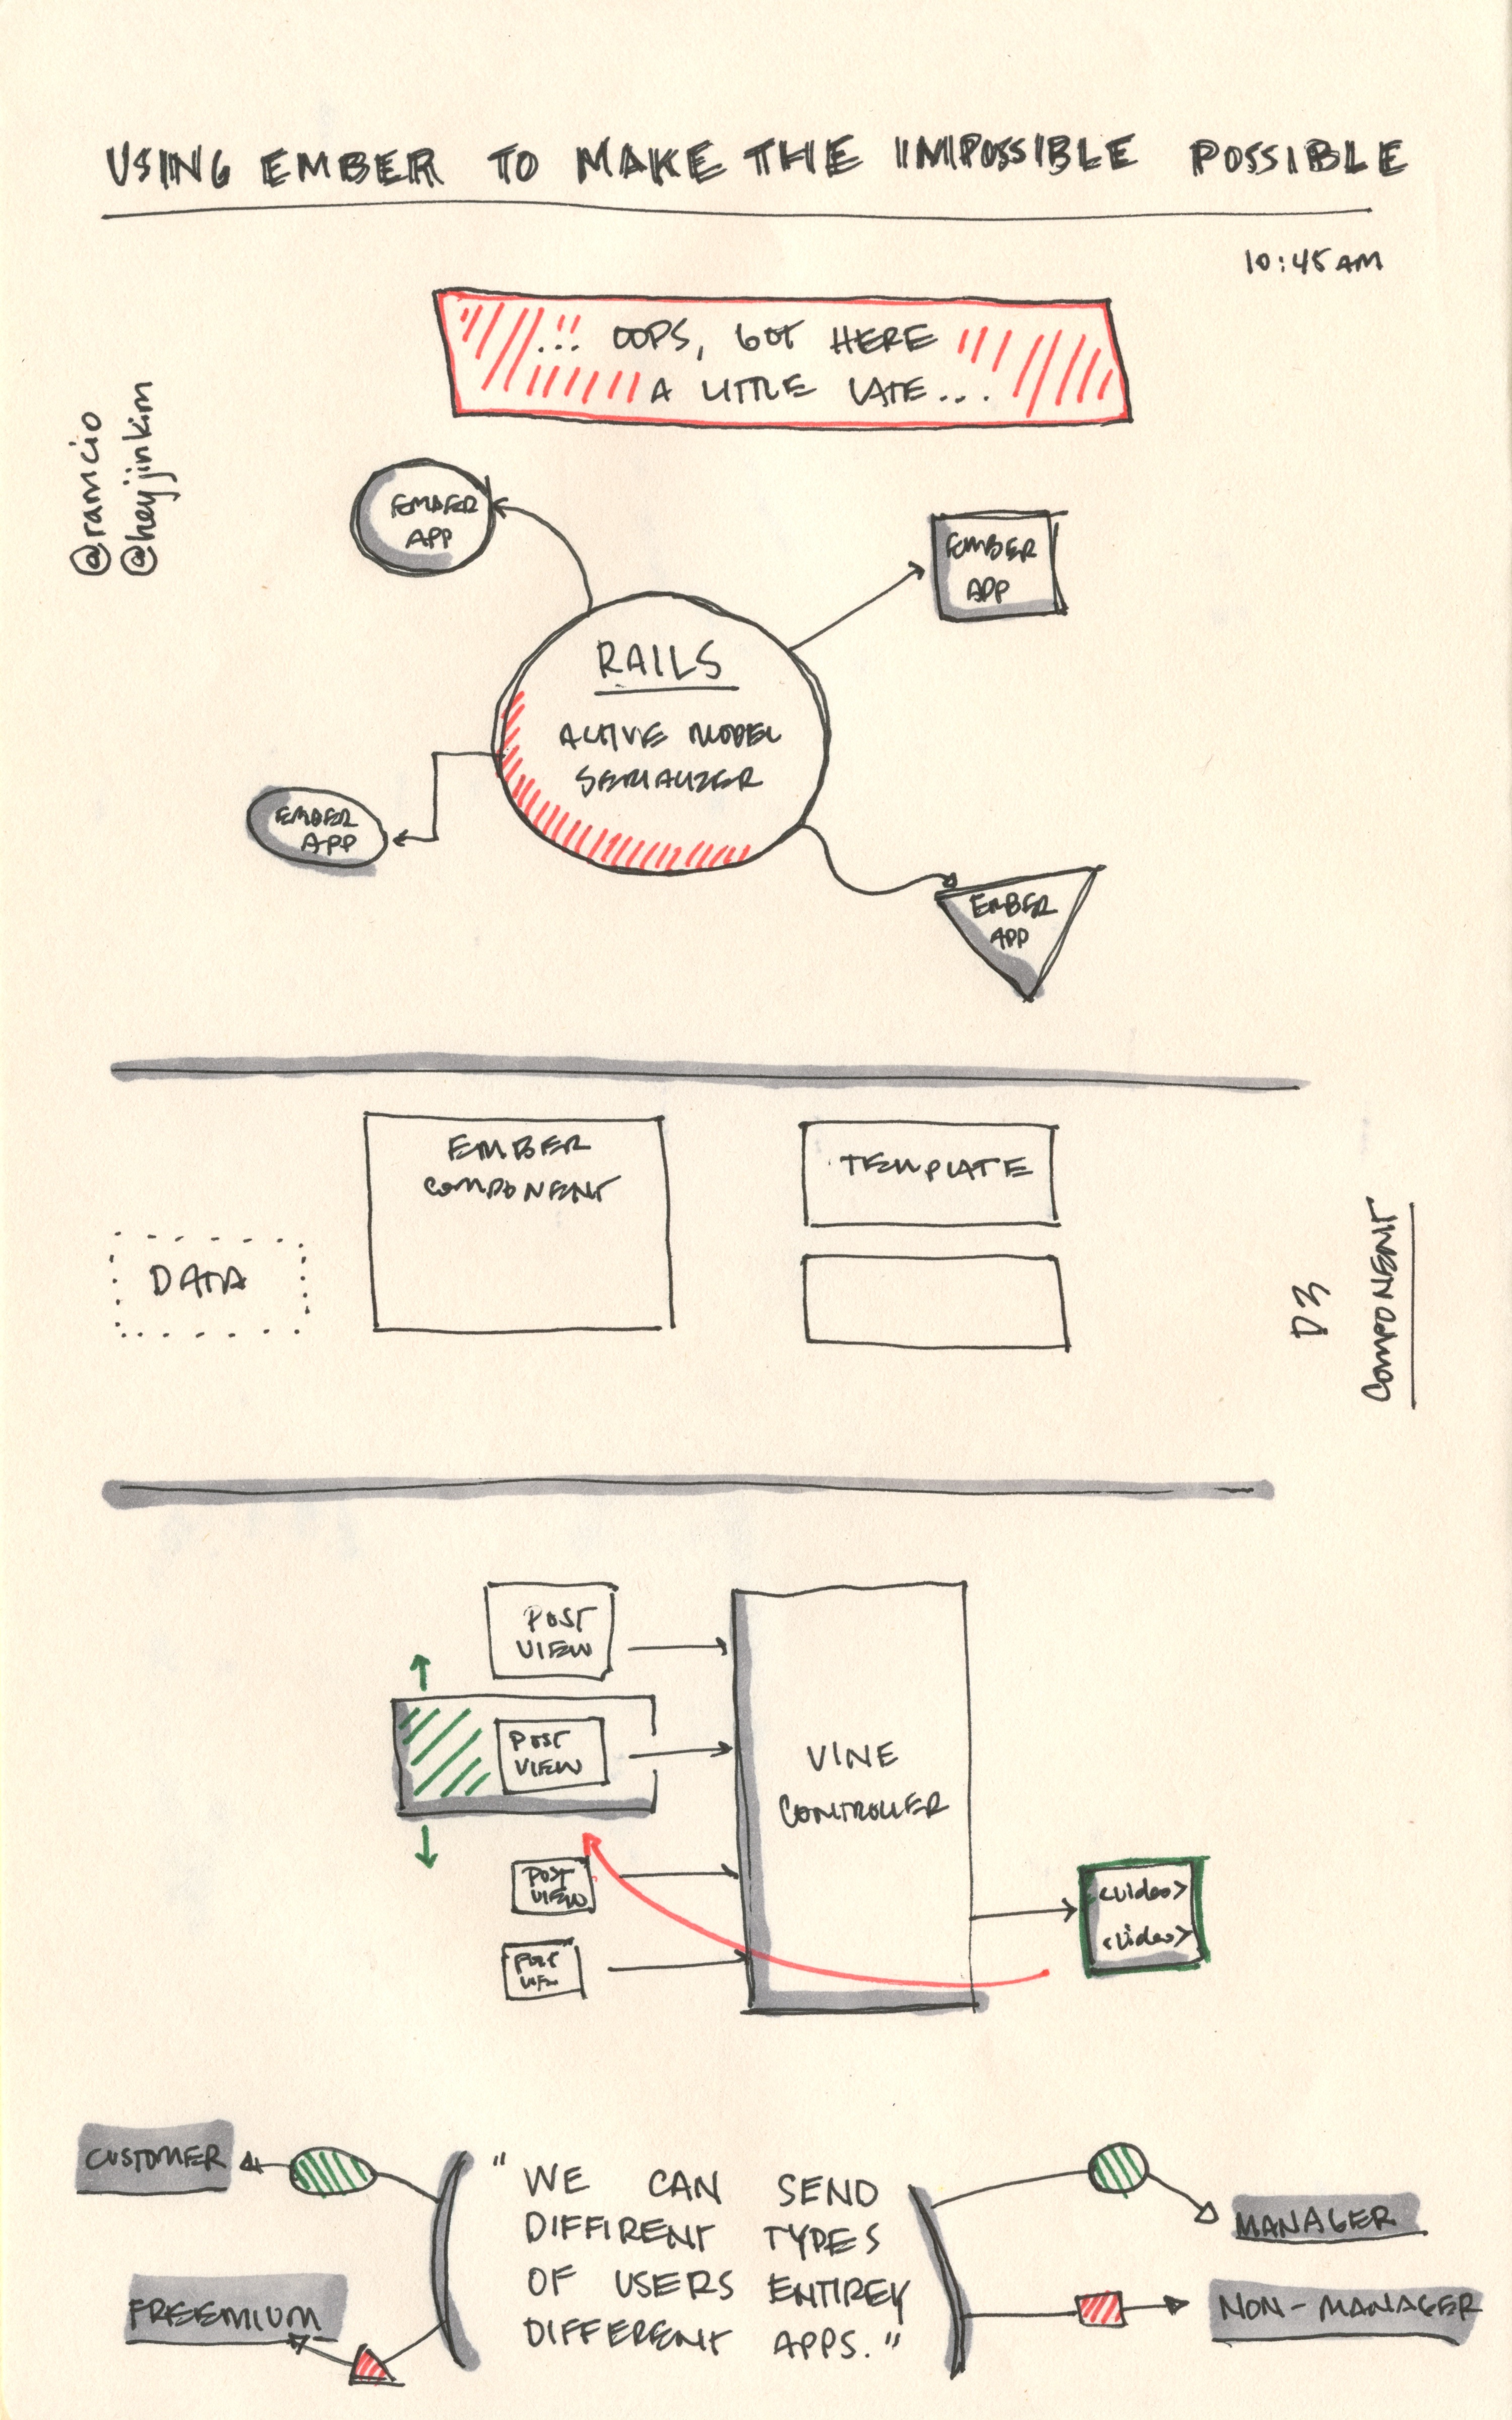 USING EMBER TO MAKE THE IMPOSSIBLE POSSIBLE
10:45 AM
... OOPS, GOT HERE
A LITTLE LATE...
@ramcio
@heyjinkim
EMBER
APP
EMBER
APP
RAILS
ACTIVE MODEL
SERIALIZER
EMBER
APP
EMBER
APP
EMBER
COMPONENT
TEMPLATE
DATA
D3
COMPONENT
POST
VIEW
POST
VIEW
VINE
CONTROLLER
POST
VIEW
<video>
<video>
POST
VIEW
CUSTOMER
FREEMIUM
"WE CAN SEND
DIFFIRENT TYPES
OF USERS ENTIREY
DIFFERENT APPS."
MANAGER
NON-MANAGER